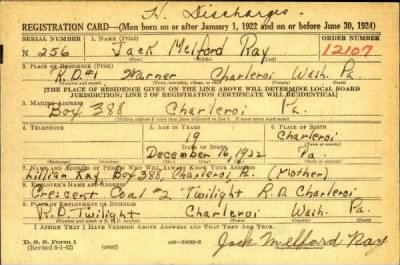 H. Discharge
REGISTRATION CARD—(Men born on or after January 1, 1922 and on or before June 30, 1924)
SERIAL NUMBER 1. NAME (Print) ORDER NUMBER
N 256 Jack Melford Ray 12107
(First) (Middle) (Last)
2. PLACE OF RESIDENCE (Print)
R.D.#1 Warner Charleroi Wash. Pa.
(Number and street) (Town, township, village, or city) (County) (State)
[THE PLACE OF RESIDENCE GIVEN ON THE LINE ABOVE WILL DETERMINE LOCAL BOARD
JURISDICTION; LINE 2 OF REGISTRATION CERTIFICATE WILL BE IDENTICAL]
3. MAILING ADDRESS
Box 388 Charleroi Pa.
[Mailing address if other than place indicated on line 2. If same insert word same]
4. TELEPHONE 5. AGE IN YEARS 6. PLACE OF BIRTH
19 Charleroi
DATE OF BIRTH
December 16, 1922 Pa.
7. NAME AND ADDRESS OF PERSON WHO WILL ALWAYS KNOW YOUR ADDRESS
Lillian Ray Box 388, Charleroi, Pa. (Mother)
8. EMPLOYER'S NAME AND ADDRESS
Crescent Coal #2 Twilight R.D. Charleroi
9. PLACE OF EMPLOYMENT OR BUSINESS
R.D. Twilight Charleroi Wash. Pa.
I AFFIRM THAT I HAVE VERIFIED ABOVE ANSWERS AND THAT THEY ARE TRUE.
D. S. S. Form 1
(Revised 6-1-42) (over) Jack Melford Ray